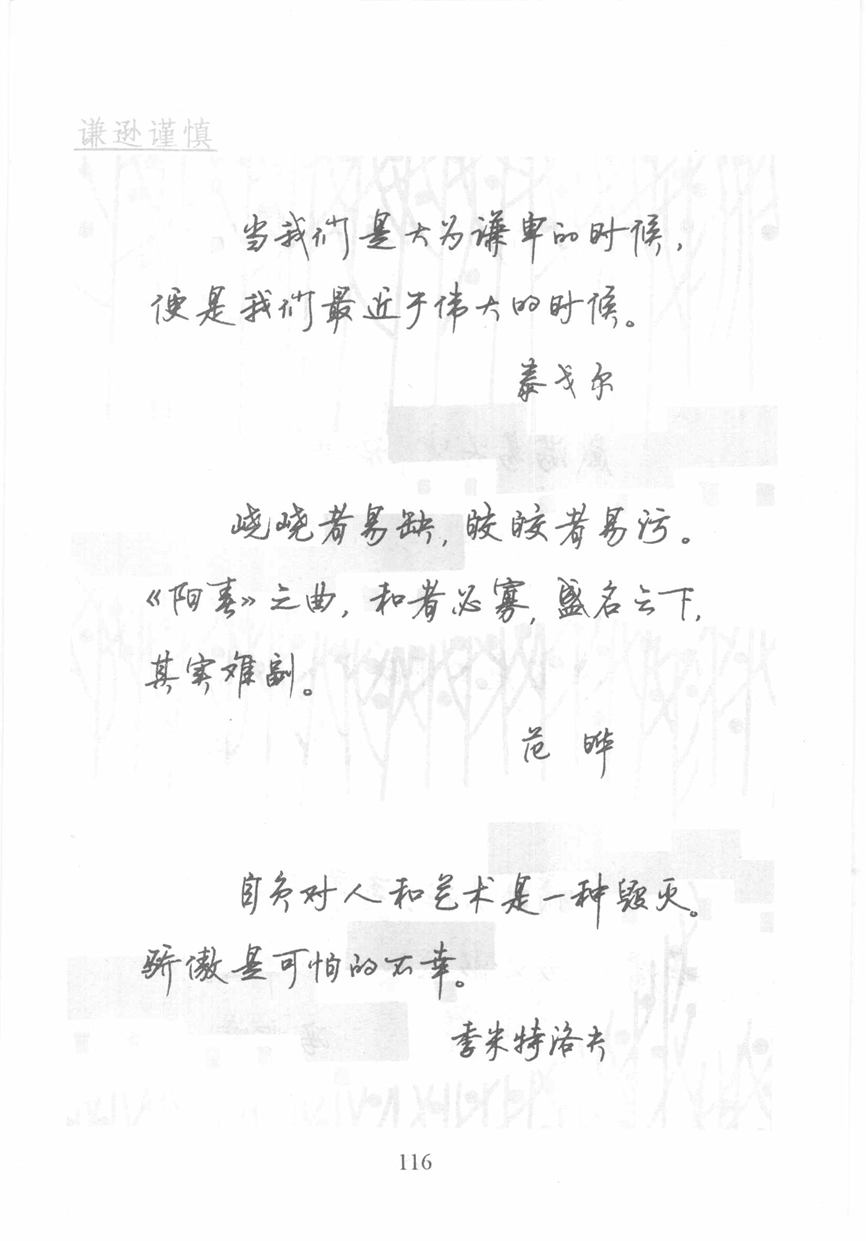 谦逊谨慎
当我们是大为谦卑的时候，
便是我们最近于伟大的时候。
泰戈尔
峣峣者易缺，皎皎者易污。
《阳春》之曲，和者必寡，盛名之下，
其实难副。
范 晔
自负对人和艺术是一种毁灭。
骄傲是可怕的不幸。
季米特洛夫
116